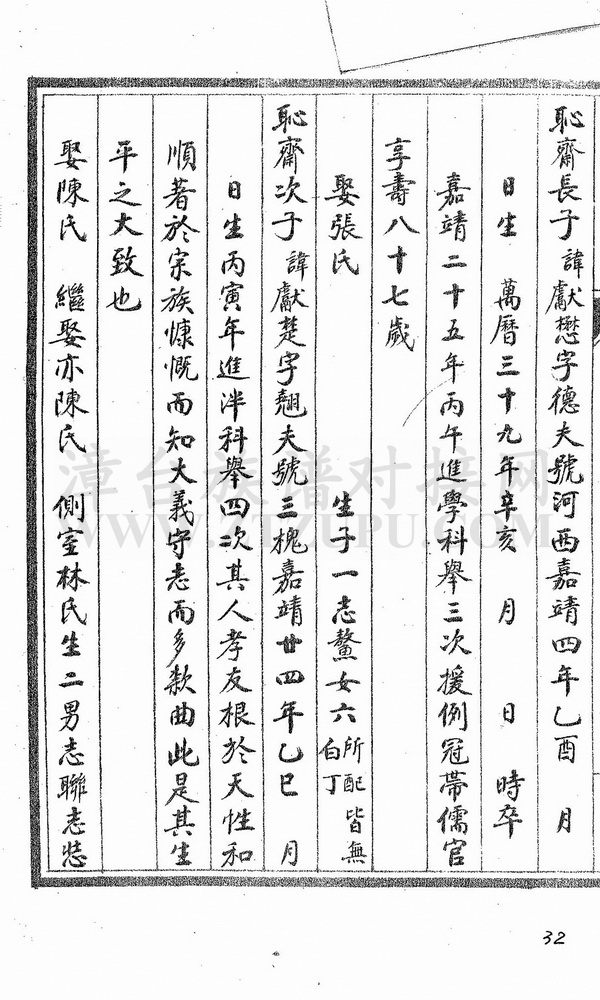 恥齋長子諱獻懋字德夫號河西嘉靖四年乙酉 月
日生 萬曆三十九年辛亥 月 日 時卒
嘉靖二十五年丙午進學科舉三次援例冠帶儒官
享壽八十七歲
娶張氏 生子一志鰲女六所配皆無白丁
恥齋次子諱獻楚字翹夫號三槐嘉靖廿四年乙巳 月
日生丙寅年進泮科舉四次其人孝友根於天性和
順著於宗族慷慨而知大義守志而多款曲此是其生
平之大致也
娶陳氏 繼娶亦陳氏 側室林氏生二男志聯志
漳台族谱对接网
WWW.ZTZUPU.COM
32